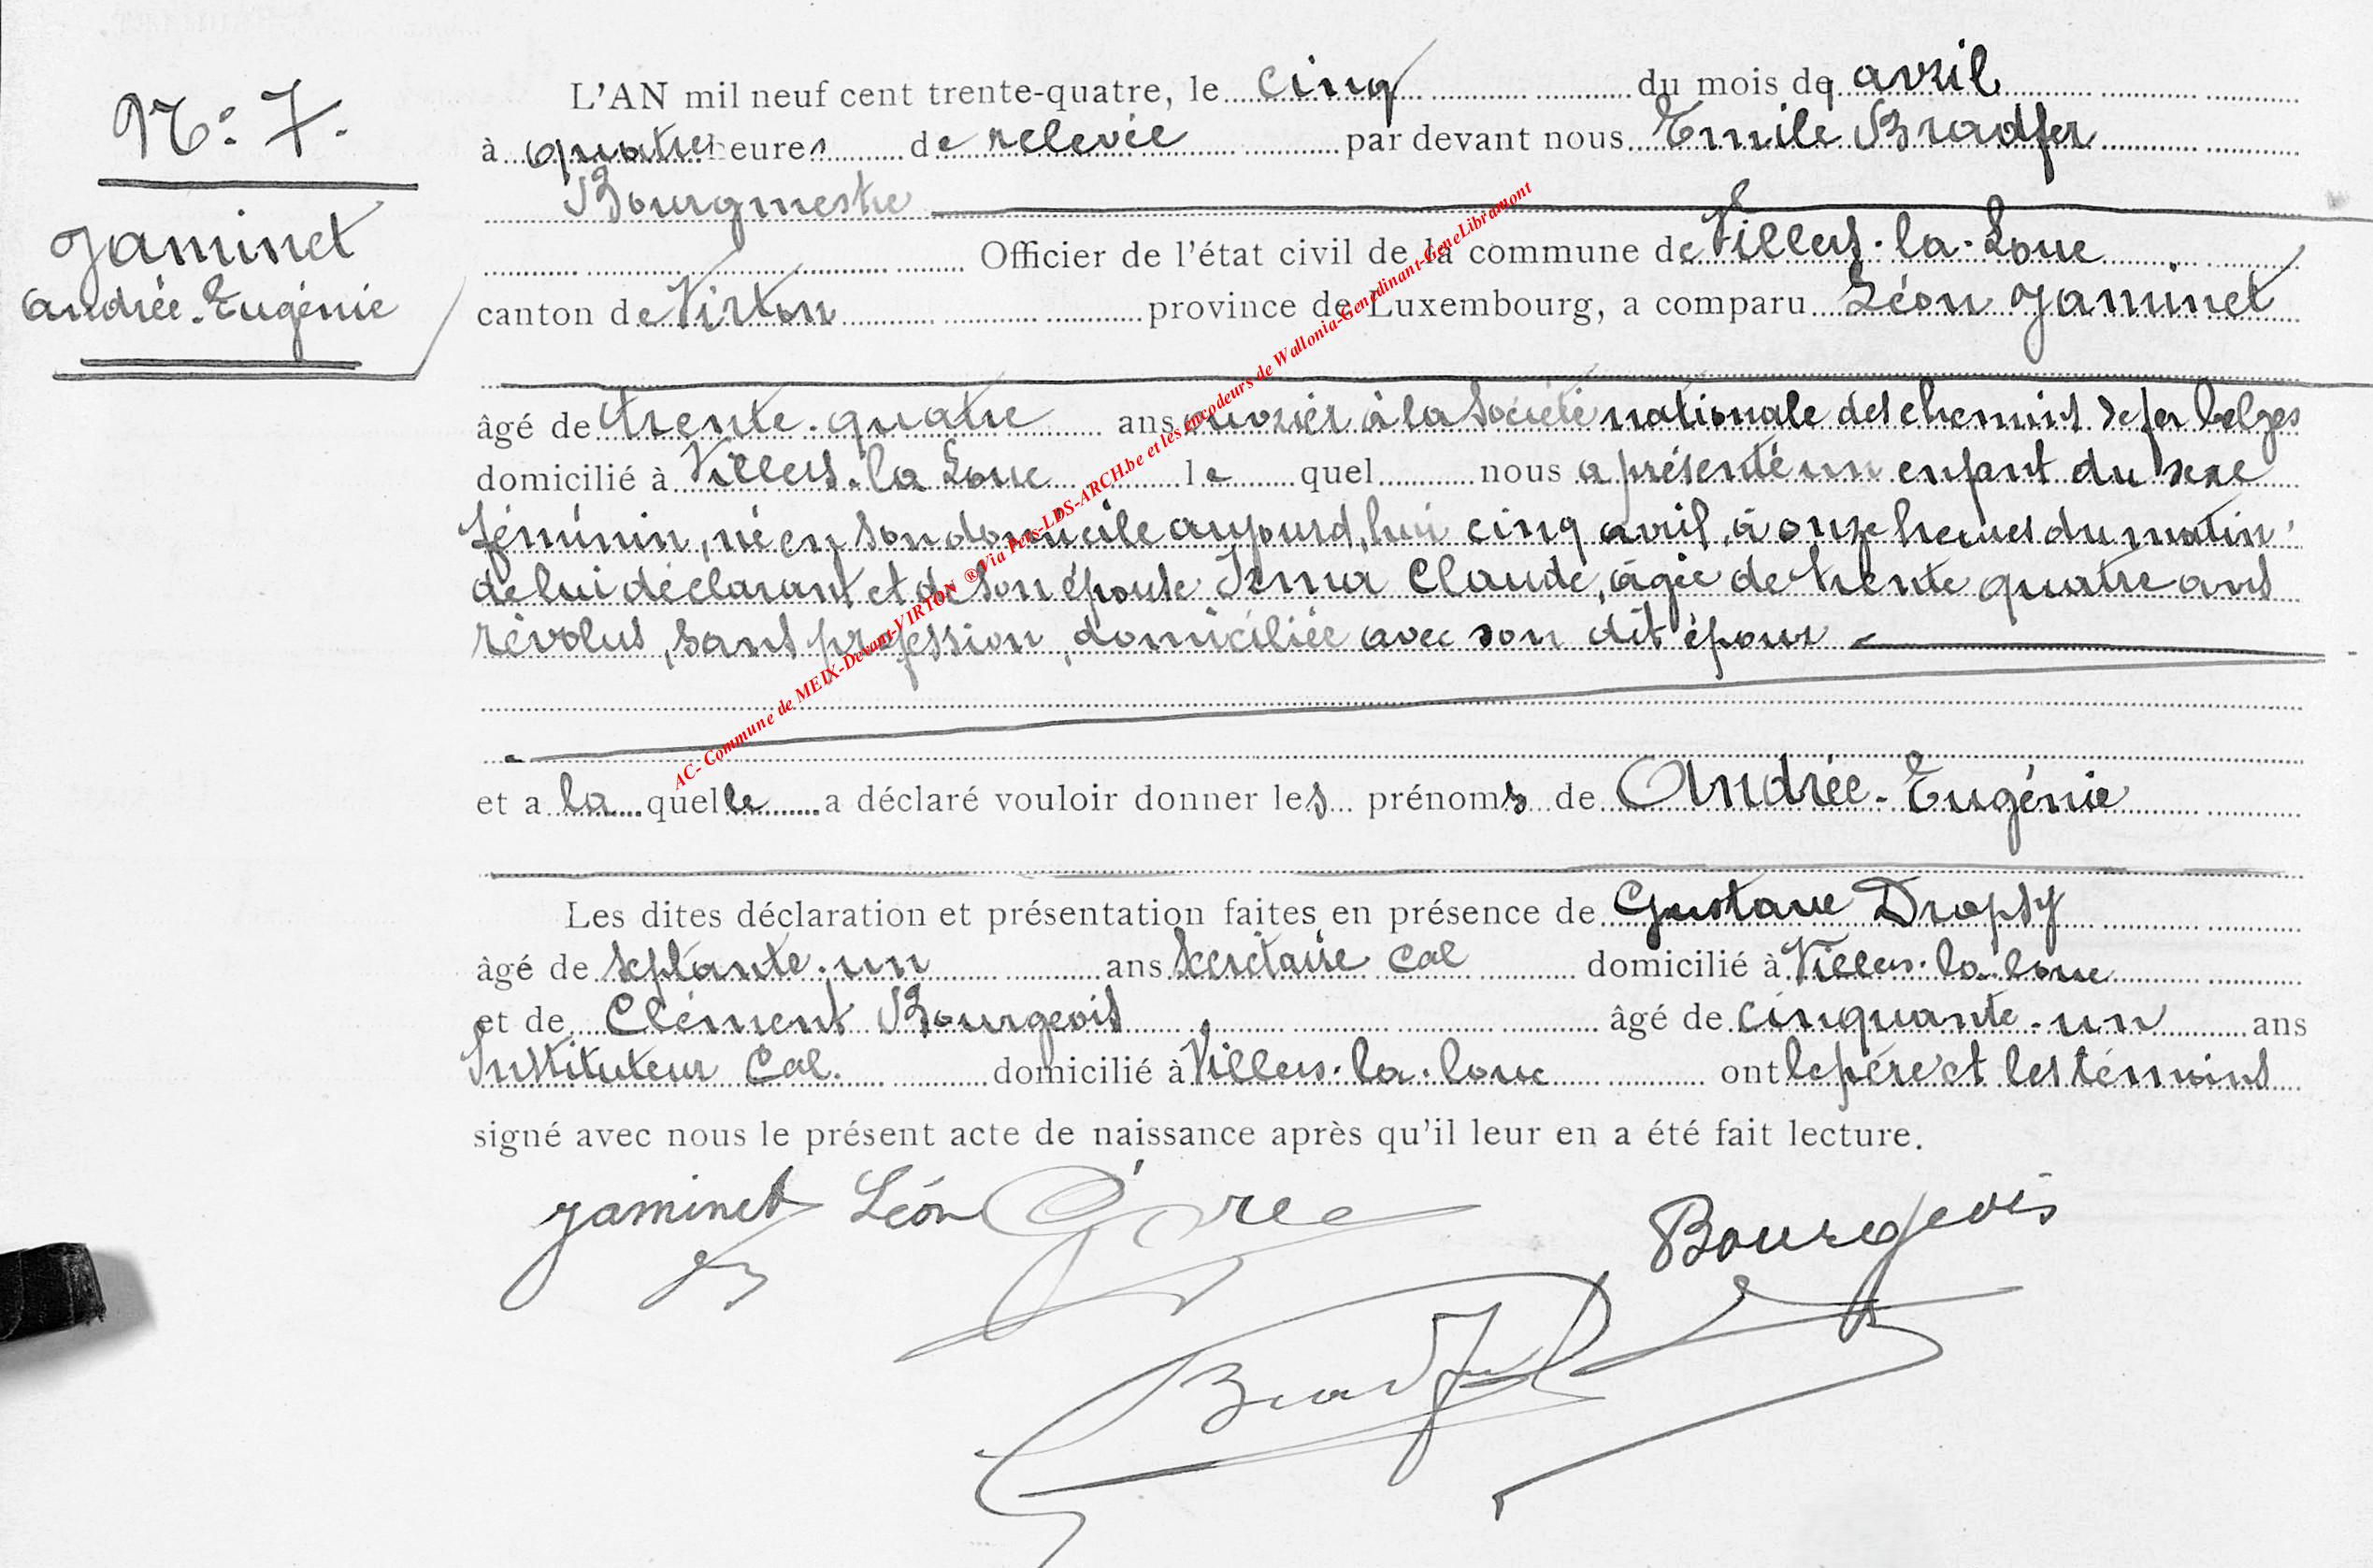 N°: 7.
Jaminet
Andrée-Eugénie
L'AN mil neuf cent trente-quatre, le cinq du mois de avril
à quatre heures de relevée par devant nous Emile Bradfer
Bourgmestre
Officier de l'état civil de la commune de Villers-la-Loue
canton de Virton province de Luxembourg, a comparu Léon Jaminet
âgé de trente-quatre ans ouvrier à la Société nationale des chemins de fer belges
domicilié à Villers-la Loue le quel nous a présenté un enfant du sexe
féminin, né en son domicile aujourd'hui cinq avril, à onze heures du matin
de lui déclarant et de son épouse Irma Claude, âgée de trente quatre ans
révolus, sans profession, domiciliée avec son dit époux
et a la quelle a déclaré vouloir donner les prénoms de Andrée-Eugénie
Les dites déclaration et présentation faites en présence de Gustave Dropsy
âgé de septante-un ans Secrétaire Cal domicilié à Villers-la-loue
et de Clément Bourgeois âgé de cinquante-un ans
Instituteur Cal. domicilié à Villers-la-loue ont le père et les témoins
signé avec nous le présent acte de naissance après qu'il leur en a été fait lecture.
Jaminet Léon
Bourgeois
Bradfer
AC- Commune de MEIX-Devant-VIRTON ® Via Pers-LDS-ARCH.be et les encodeurs de Wallonia-Genedinant-GeneLibramont